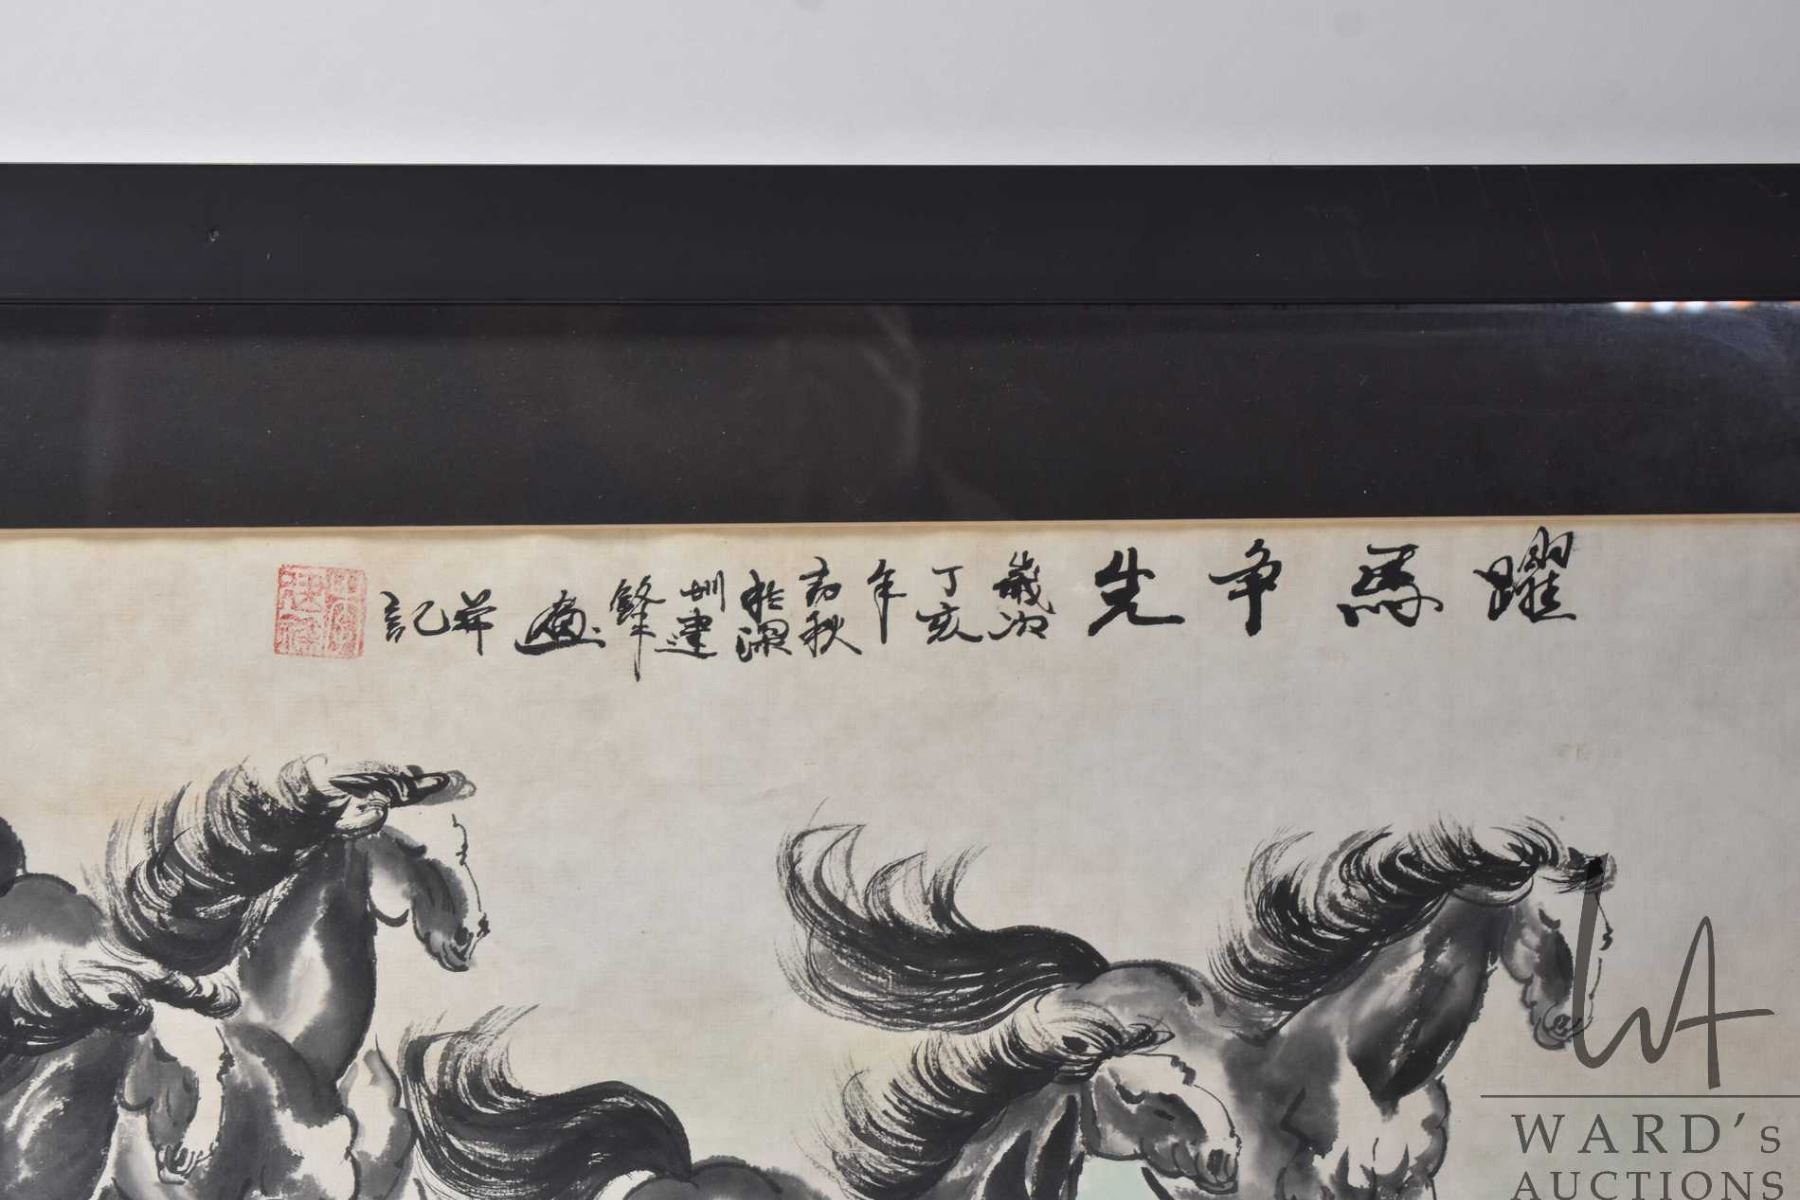 躍馬争先
歲次丁亥年初秋於深圳建鋒画并記
WARD's
AUCTIONS